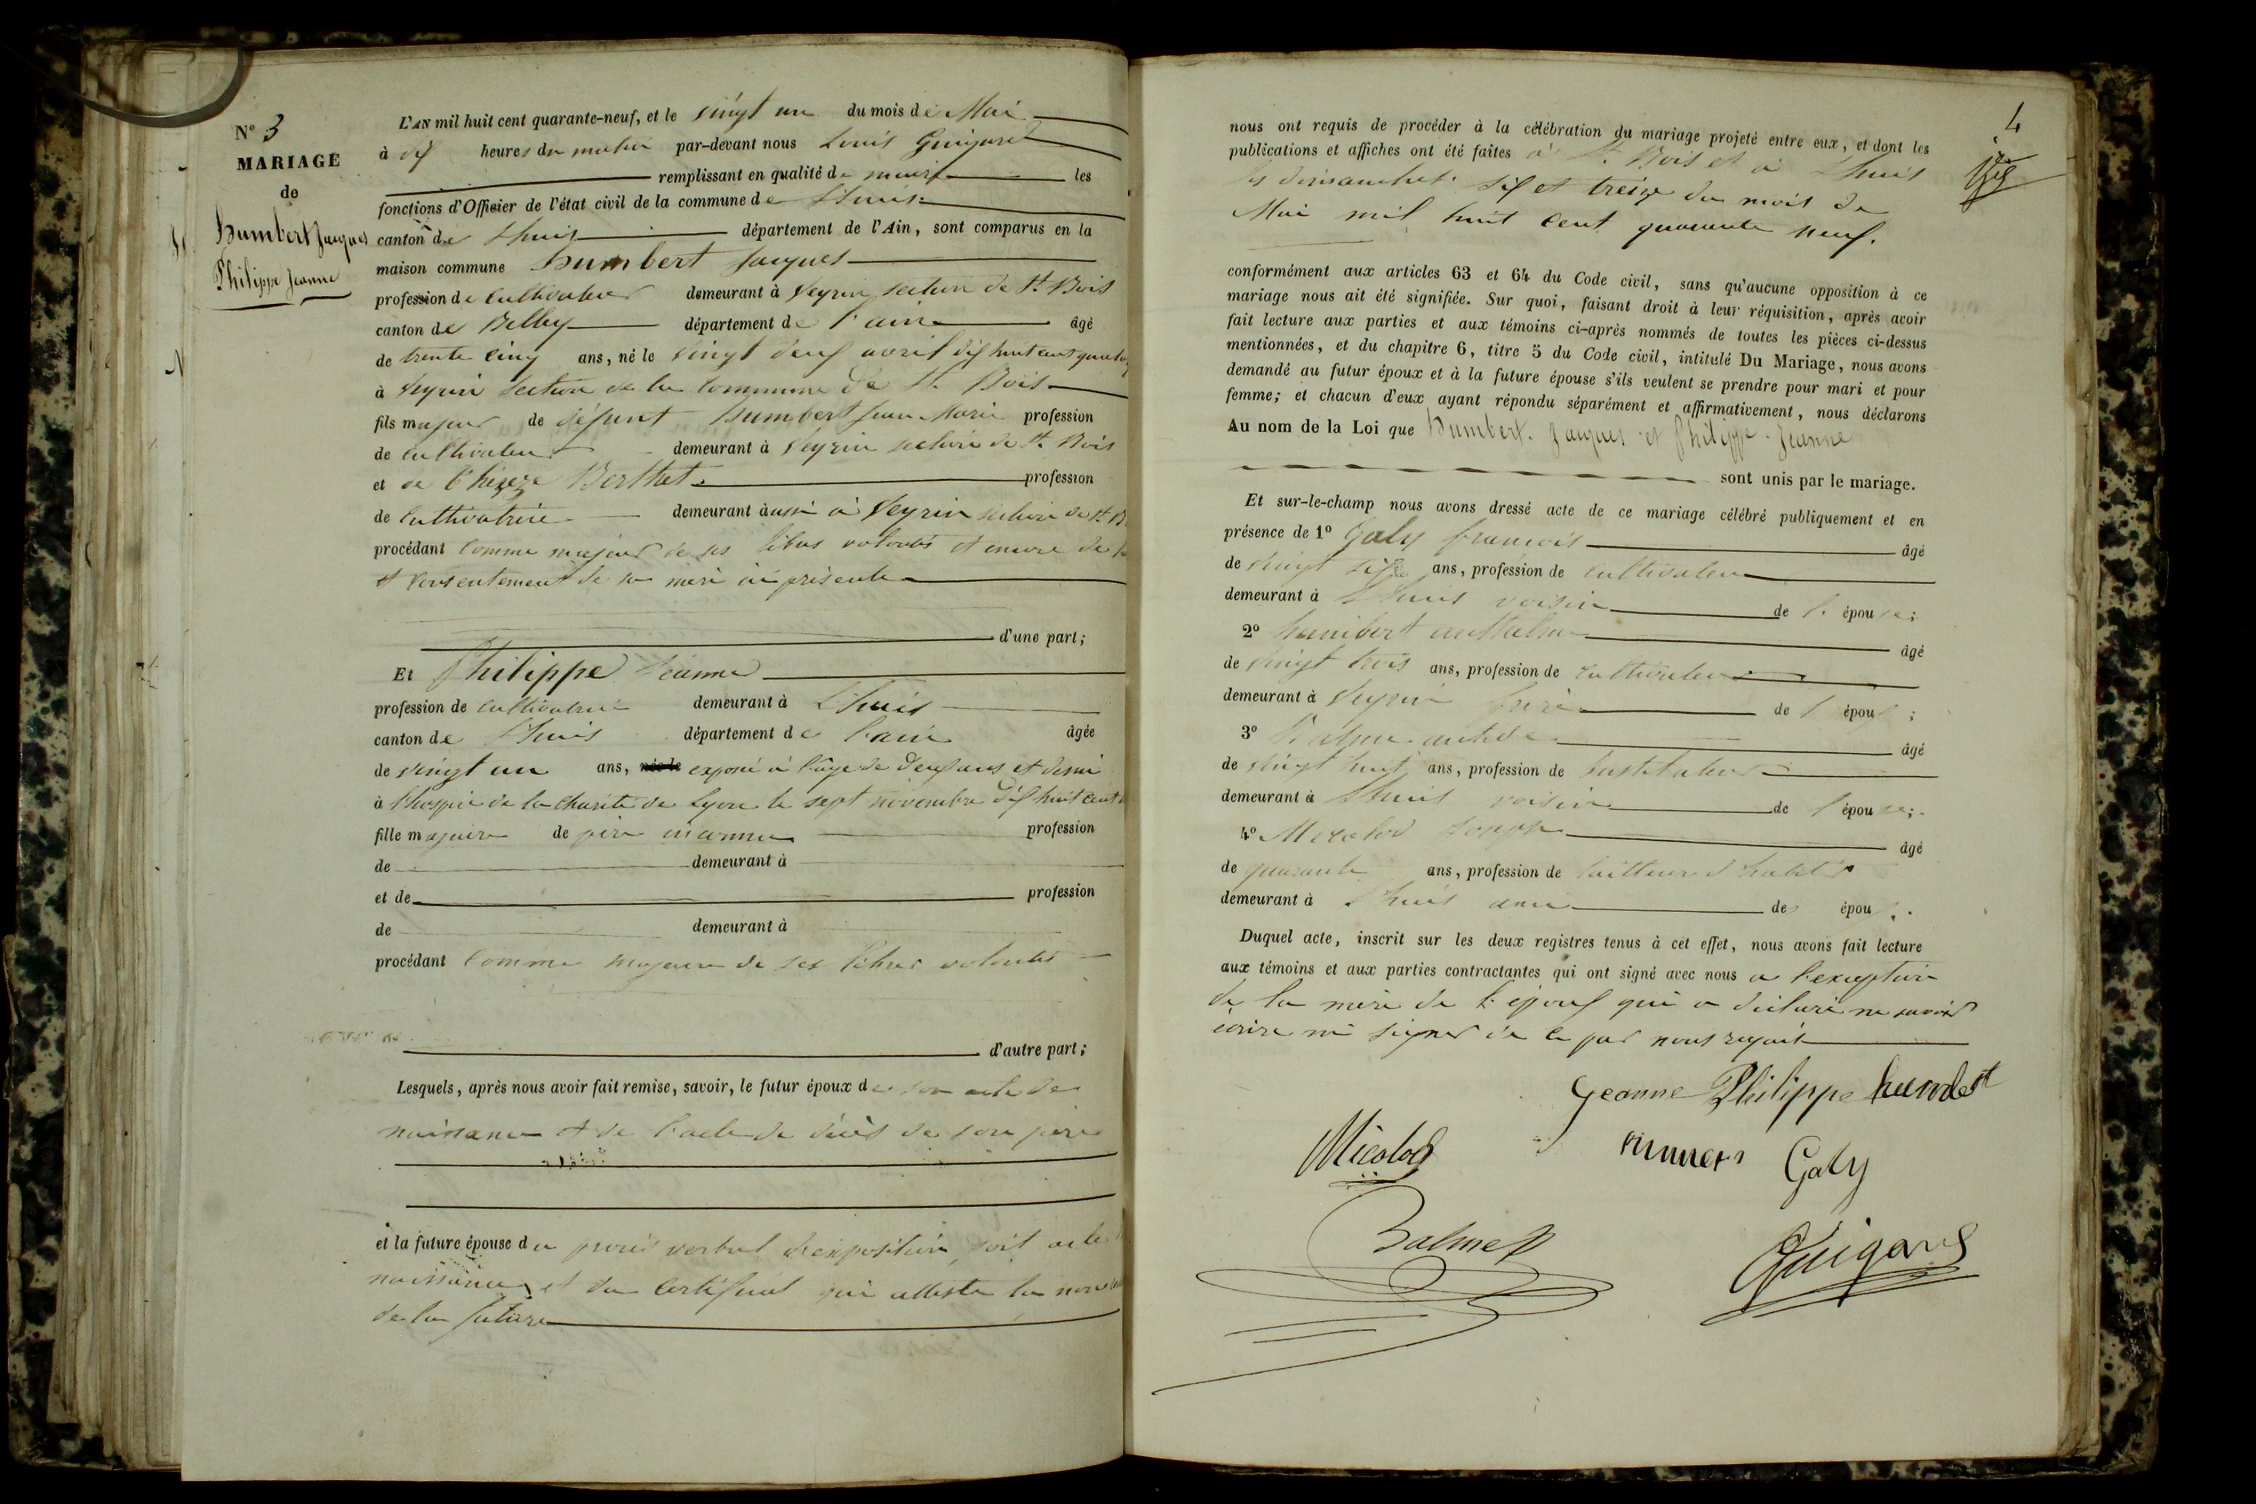 N° 3
MARIAGE
de
Humbert Jacques
Philippe Jeanne
L'AN mil huit cent quarante-neuf, et le vingt un du mois de Mai
à dix heures du matin par-devant nous Louis Guigard
remplissant en qualité de maire les
fonctions d'Officier de l'état civil de la commune de Lhuis
canton de Lhuis département de l'Ain, sont comparus en la
maison commune Humbert Jacques
profession de cultivateur demeurant à Veyrin section de St. Bois
canton de Belley département de l'ain âgé
de trente cinq ans, né le vingt deux avril dix huit cent quatorze
à Veyrin section de la commune de St. Bois
fils majeur de défunt Humbert Jean Marie profession
de cultivateur demeurant à Veyrin section de St. Bois
et de Thérèze Berthet profession
de cultivatrice demeurant aussi à Veyrin section de St. B
procédant comme majeur de ses libres volontés et encore de
et consentement de sa mère ici présente
d'une part;
Et Philippe Jeanne
profession de cultivatrice demeurant à Lhuis
canton de Lhuis département de l'ain âgée
de vingt un ans, exposé à l'âge de deux ans et demi
à l'hospice de la charité de Lyon le sept novembre dix huit cent
fille majeure de père inconnu profession
de demeurant à
et de profession
de demeurant à
procédant comme majeure de ses libres volontés
d'autre part;
Lesquels, après nous avoir fait remise, savoir, le futur époux de son acte de
naissance et de l'acte de décès de son père
et la future épouse du procès verbal d'exposition, soit acte
naissance et du certificat qui atteste la
de la future
4
nous ont requis de procéder à la célébration du mariage projeté entre eux, et dont les
publications et affiches ont été faites à St. Bois et à Lhuis
les dimanches six et treize du mois de
Mai mil huit cent quarante neuf.
conformément aux articles 63 et 64 du Code civil, sans qu'aucune opposition à ce
mariage nous ait été signifiée. Sur quoi, faisant droit à leur réquisition, après avoir
fait lecture aux parties et aux témoins ci-après nommés de toutes les pièces ci-dessus
mentionnées, et du chapitre 6, titre 5 du Code civil, intitulé Du Mariage, nous avons
demandé au futur époux et à la future épouse s'ils veulent se prendre pour mari et pour
femme; et chacun d'eux ayant répondu séparément et affirmativement, nous déclarons
Au nom de la Loi que Humbert Jacques et Philippe Jeanne
sont unis par le mariage.
Et sur-le-champ nous avons dressé acte de ce mariage célébré publiquement et en
présence de 1° Galy francois âgé
de vingt six ans, profession de cultivateur
demeurant à Lhuis voisin de l'épouse;
2° humbert anthelme âgé
de vingt trois ans, profession de cultivateur
demeurant à Veyrin frère de l'époux;
3° Balme âgé
de vingt huit ans, profession de instituteur
demeurant à Lhuis voisin de l'épouse;
4° Micolod Joseph âgé
de quarante ans, profession de tailleur d'habits
demeurant à Lhuis ami des époux.
Duquel acte, inscrit sur les deux registres tenus à cet effet, nous avons fait lecture
aux témoins et aux parties contractantes qui ont signé avec nous a l'exception
de la mère de l'époux qui a déclaré ne savoir
écrire ni signer de ce par nous requis
Jeanne Philippe humbert
Micolod Galy
Balme Guigard